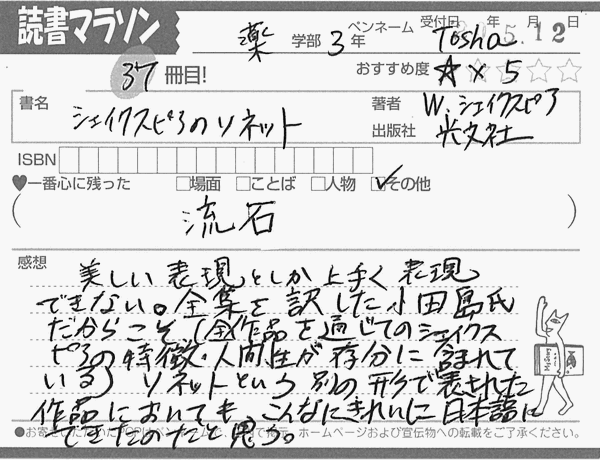 読書マラソン
薬 学部 3 年
ペンネーム Tosha
受付日 年 5月 12日
37 冊目!
おすすめ度 ☆×5
書名 シェイクスピアのソネット
著者 W. シェイクスピア
出版社 光文社
ISBN
♥一番心に残った □場面 □ことば □人物 ✓その他
( 流石 )
感想
美しい表現としか上手く表現
できない。全集を訳した小田島氏
だからこそ(全)作品を通じてのシェイクス
ピアの特徴・人間性が存分に含まれて
いる) ソネットという別の形で表された
作品においても、こんなにきれいに日本語に
できたのだと思う。
●お寄せいただいたPOPはペンネームで、 で掲示、ホームページおよび宣伝物への転載をご了承ください。